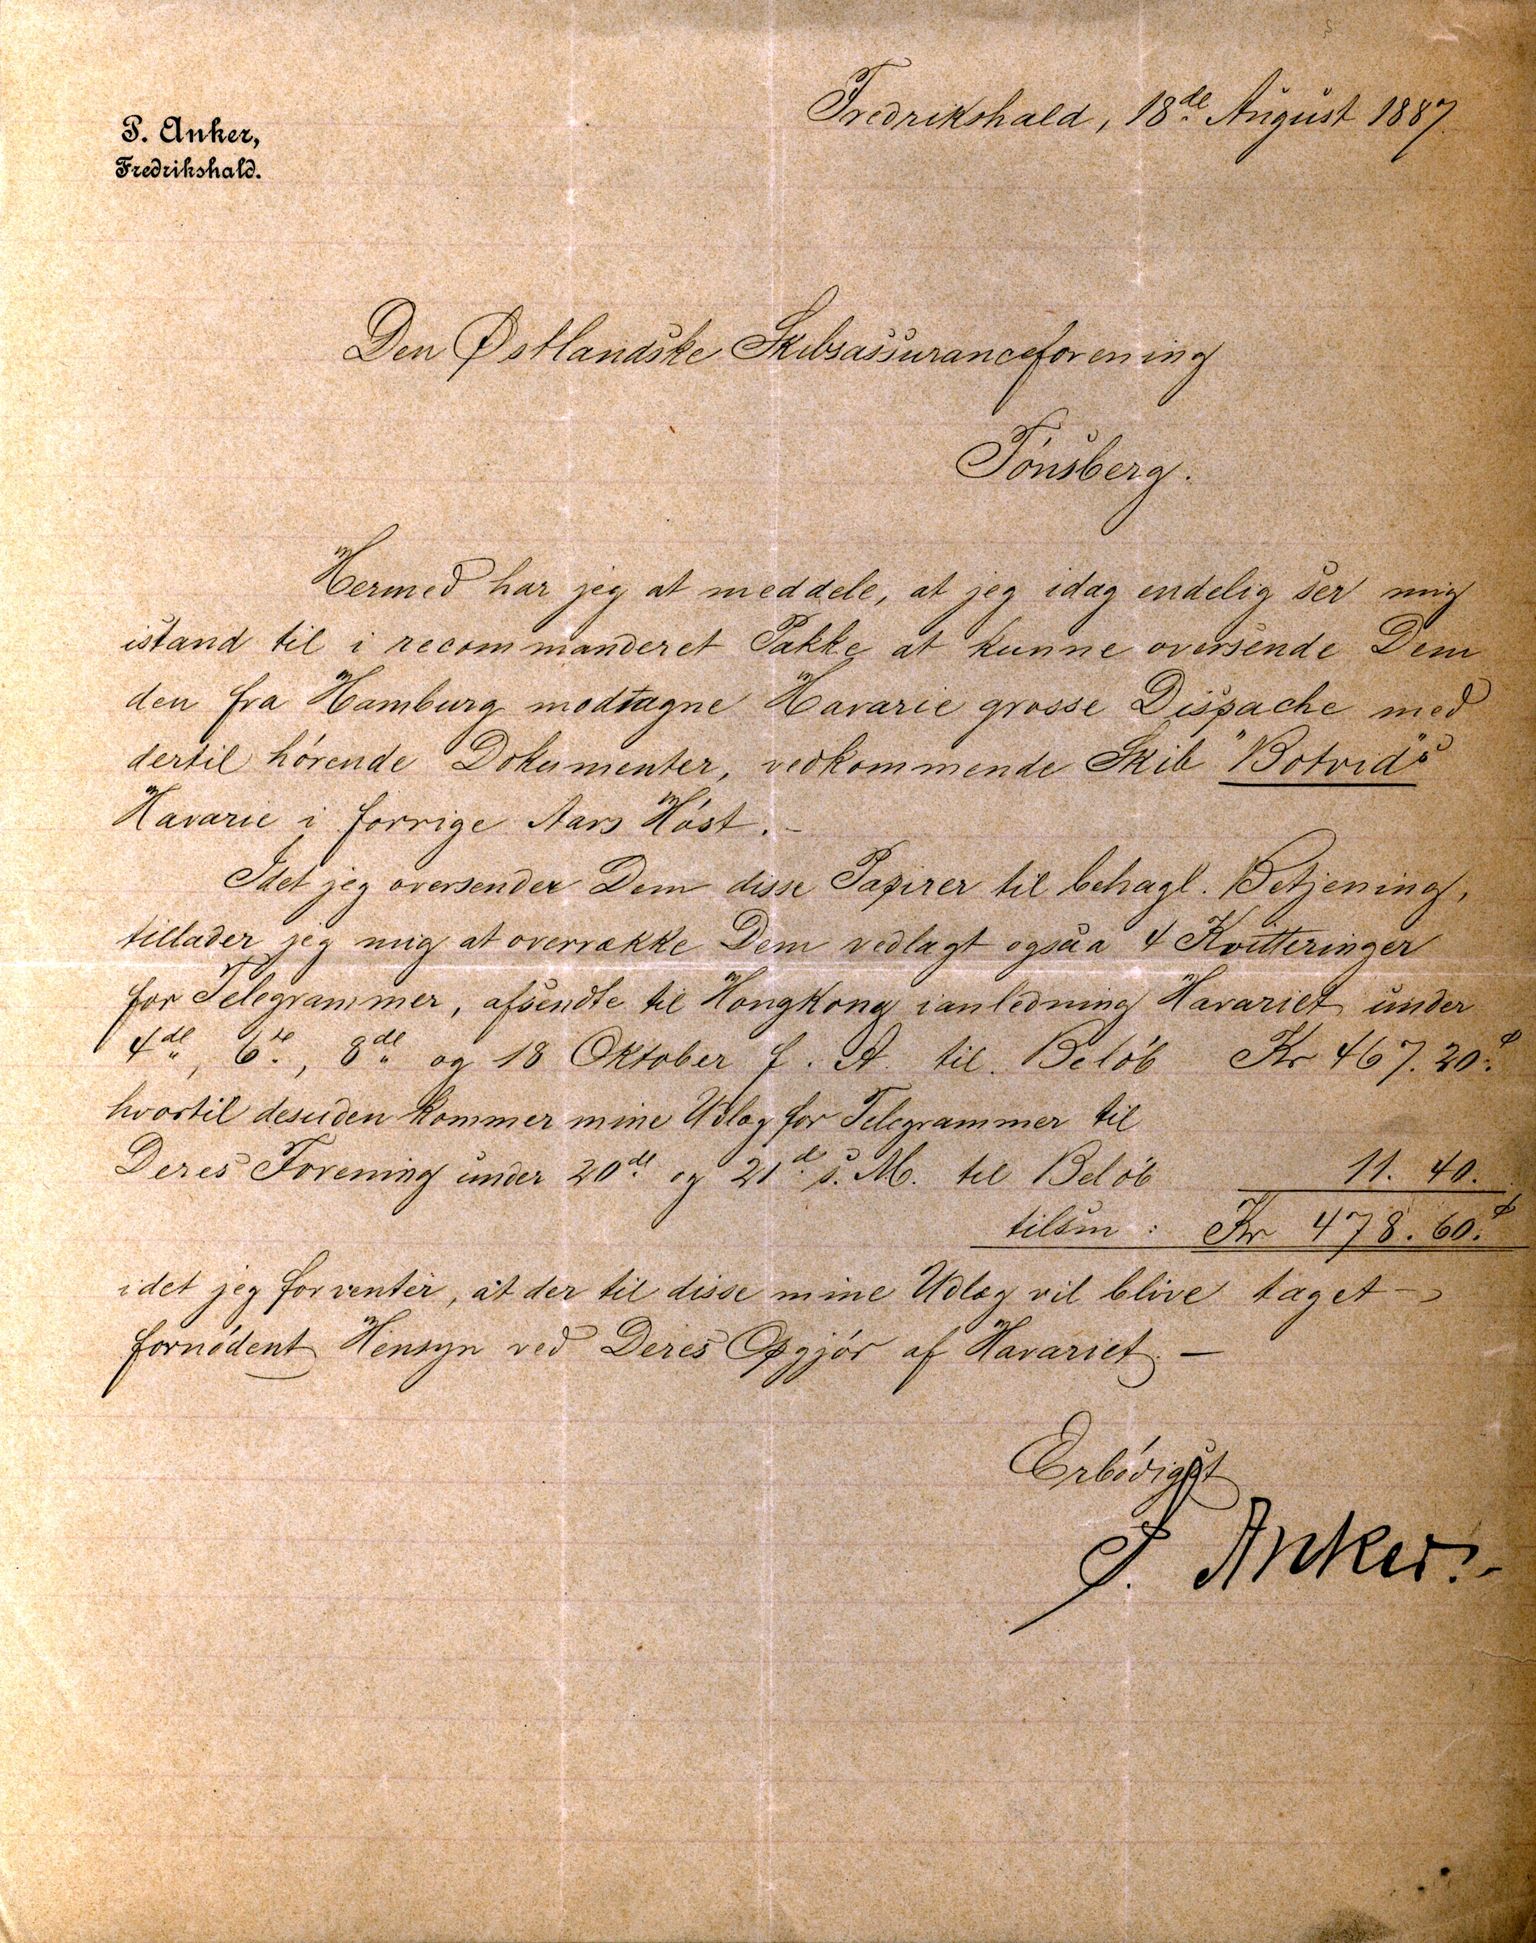 P. Anker,
Fredrikshald.
Fredrikshald, 18de August 1887
Den Østlandske Skibsassuranceforening
Tónsberg.
Hermed har jeg at meddele, at jeg idag endelig ser mig
istand til i recommanderet Pakke at kunne oversende Dem
den fra Hamburg modtagne Havarie grosse Dispache med
dertil hórende Dokumenter, vedkommende Skib "Botvid"s
Havarie i forrige Aars Hóst. –
Idet jeg oversender Dem disse Papirer til behagl. Betjening,
tillader jeg mig at overrække Dem vedlagt ogsaa 4 Kvitteringer
for Telegrammer, afsendte til HongKong ianledning Havariet under
4de, 6te, 8de og 18 Oktober f. A. til Belób Kr 467.20.
hvortil desuden kommer mine Udlæg for Telegrammer til
Deres Forening under 20de og 21de s. M. til Belób 11.40.
tilsm: Kr 478.60.
idet jeg forventer, at der til disse mine Udlæg vil blive taget
fornódent Hensyn ved Deres Opgjór af Havariet. –
Erbódigst
P. Anker.